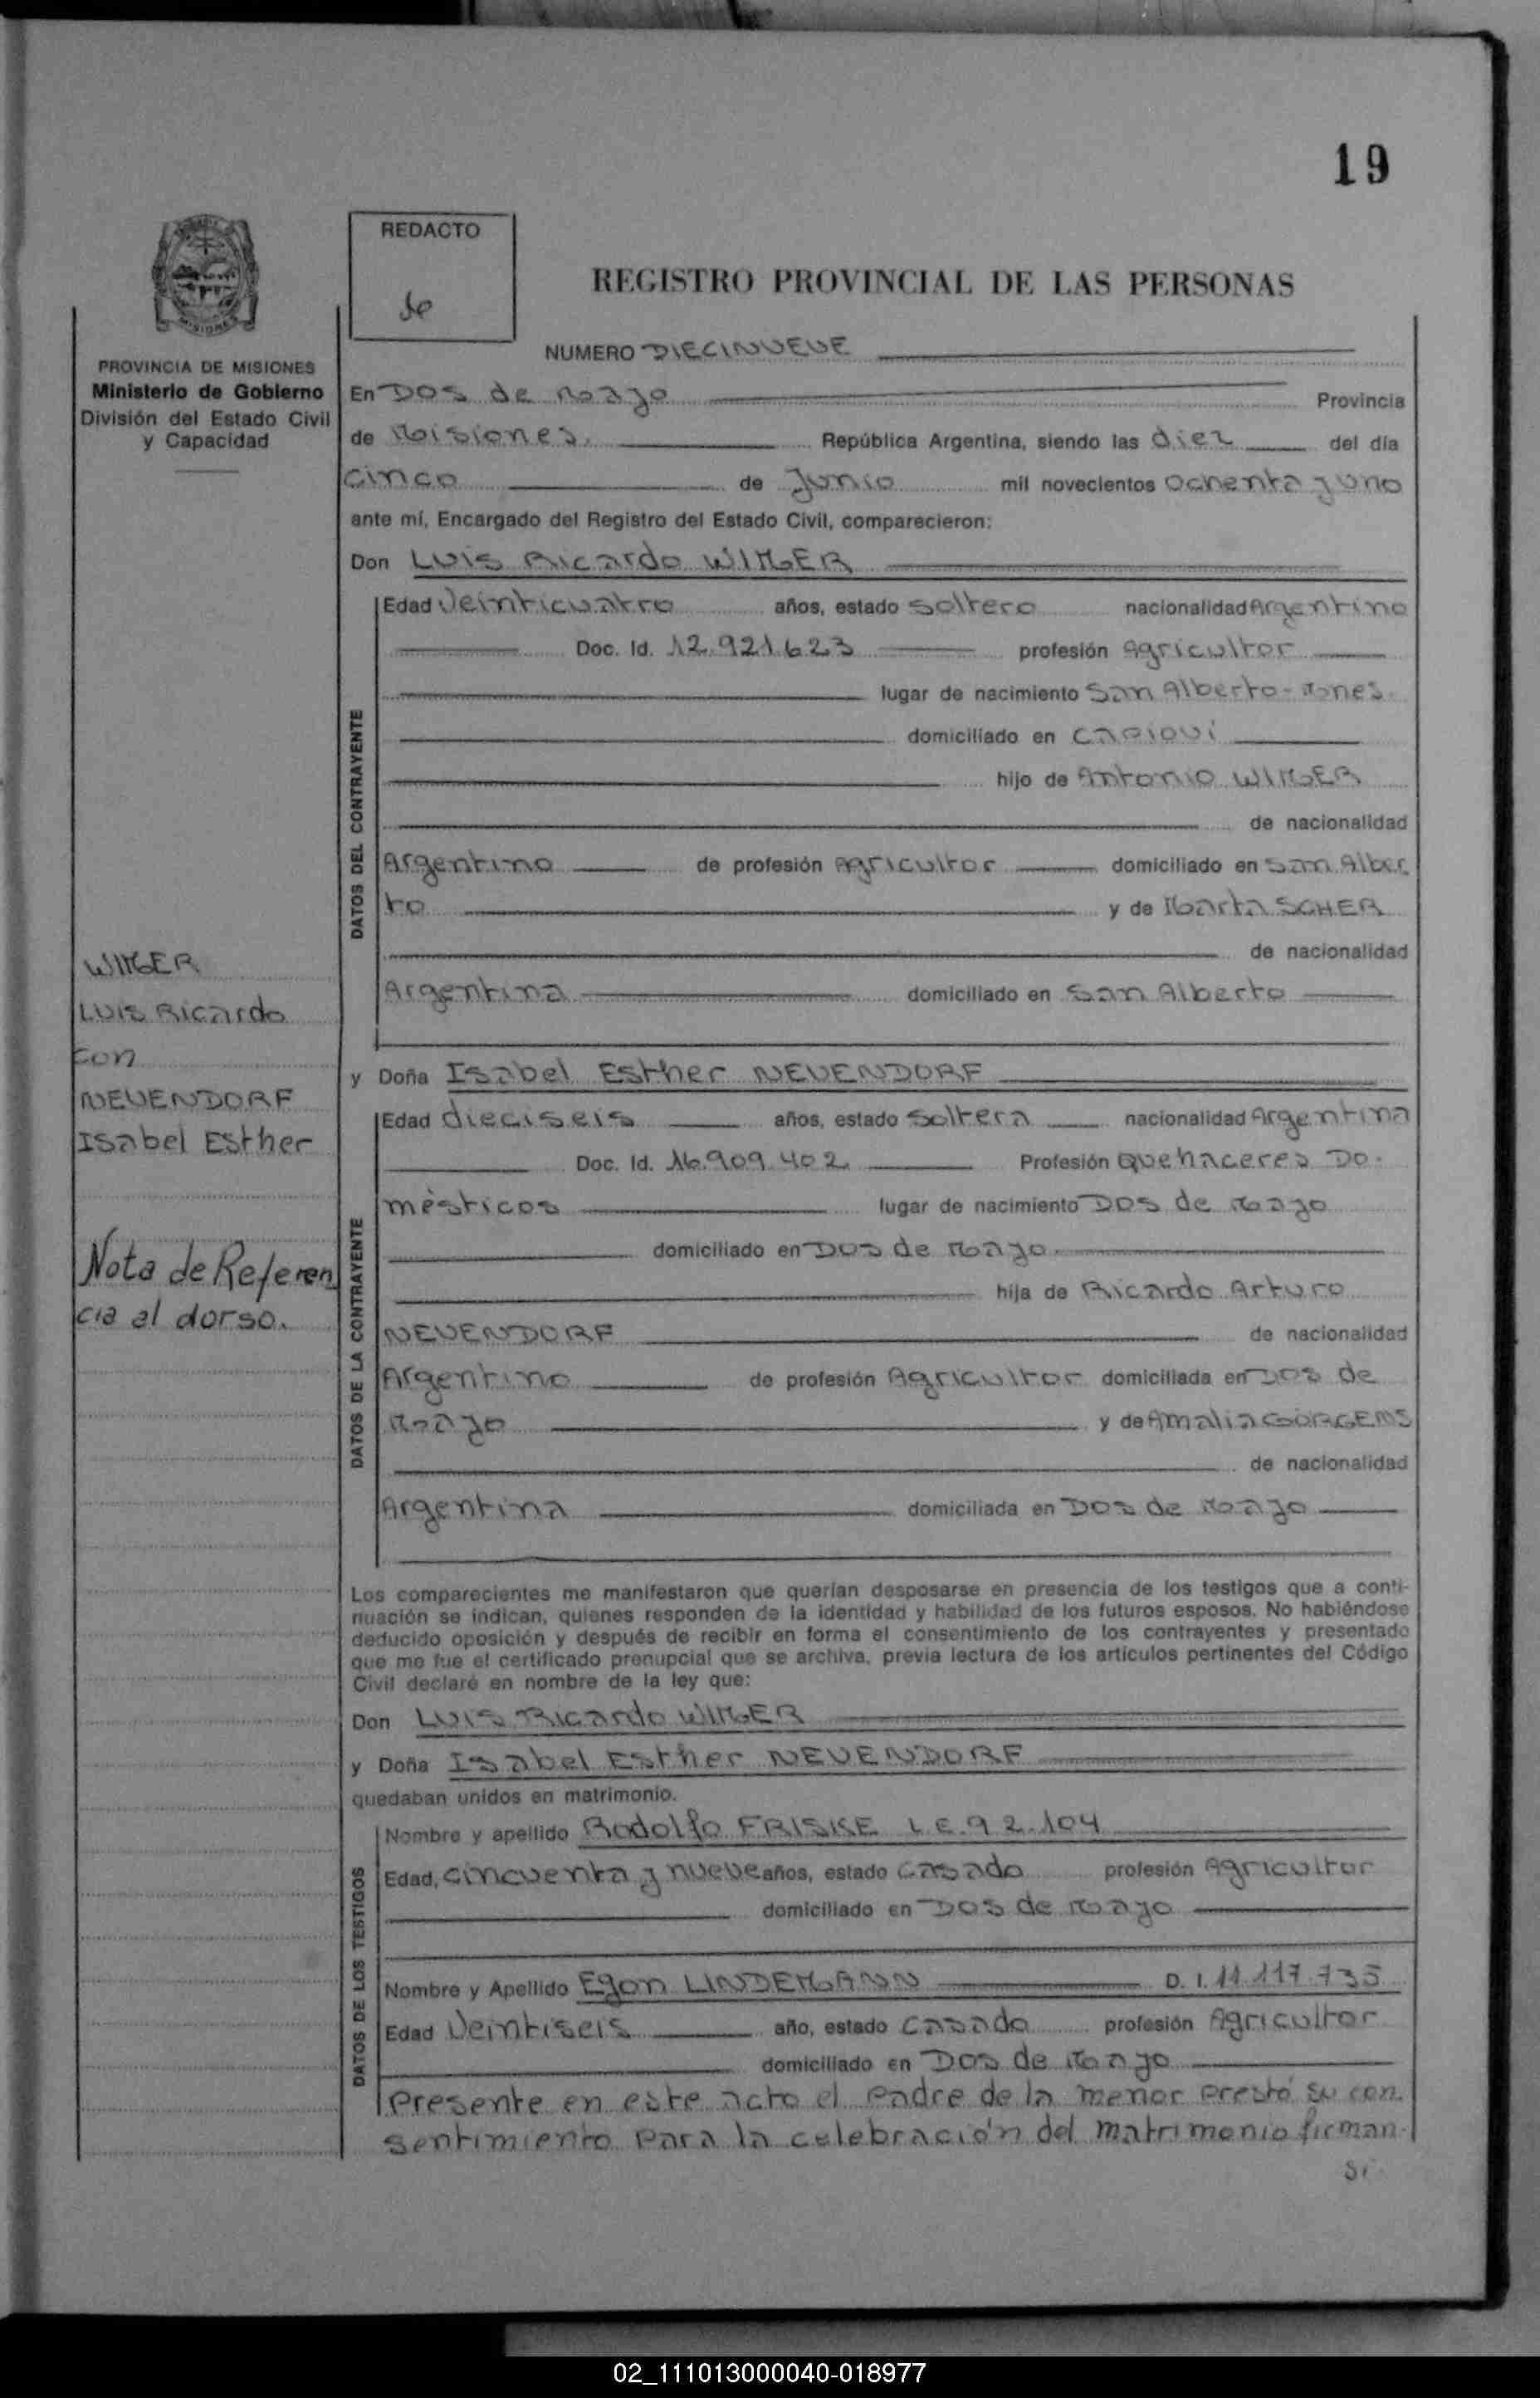 19
REDACTO
REGISTRO PROVINCIAL DE LAS PERSONAS
PROVINCIA DE MISIONES
Ministerio de Gobierno
División del Estado Civil
y Capacidad
NUMERO DIECINUEVE
En Dos de mayo Provincia
de Misiones. República Argentina, siendo las diez del día
cinco de Junio mil novecientos ochenta y uno
ante mí, Encargado del Registro del Estado Civil, comparecieron:
Don Luis Ricardo WIMGER
Edad Veinticuatro años, estado soltero nacionalidad Argentino
Doc. Id. 12.921.623 profesión Agricultor
lugar de nacimiento San Alberto - Mnes.
domiciliado en CAPIOVÍ
hijo de Antonio WIMGER
de nacionalidad
Argentino de profesión Agricultor domiciliado en San Alber
to y de Marta SCHER
de nacionalidad
Argentina domiciliado en San Alberto
DATOS DEL CONTRAYENTE
WIMGER
Luis Ricardo
con
NEUENDORF
Isabel Esther
Nota de Referen
cia al dorso.
y Doña Isabel Esther NEUENDORF
Edad dieciseis años, estado Soltera nacionalidad Argentina
Doc. Id. 16.909.402 Profesión Quehaceres Do.
mésticos lugar de nacimiento Dos de mayo
domiciliado en Dos de mayo.
hija de Ricardo Arturo
NEUENDORF de nacionalidad
Argentino de profesión Agricultor domiciliada en Dos de
mayo y de Amalia GORGENS
de nacionalidad
Argentina domiciliada en Dos de mayo
DATOS DE LA CONTRAYENTE
Los comparecientes me manifestaron que querían desposarse en presencia de los testigos que a conti-
nuación se indican, quienes responden de la identidad y habilidad de los futuros esposos. No habiéndose
deducido oposición y después de recibir en forma el consentimiento de los contrayentes y presentado
que me fue el certificado prenupcial que se archiva, previa lectura de los artículos pertinentes del Código
Civil declaré en nombre de la ley que:
Don Luis Ricardo WIMGER
y Doña Isabel Esther NEUENDORF
quedaban unidos en matrimonio.
Nombre y apellido Rodolfo FRISKE L.E. 92.104
Edad, cincuenta y nueve años, estado casado profesión Agricultor
domiciliado en Dos de mayo
Nombre y Apellido Egon LINDEMANN D. I. 11.117.735
Edad Veintiseis año, estado casado profesión Agricultor
domiciliado en Dos de mayo
DATOS DE LOS TESTIGOS
Presente en este acto el Padre de la menor prestó su con.
sentimiento para la celebración del matrimonio firman.
02_111013000040-018977